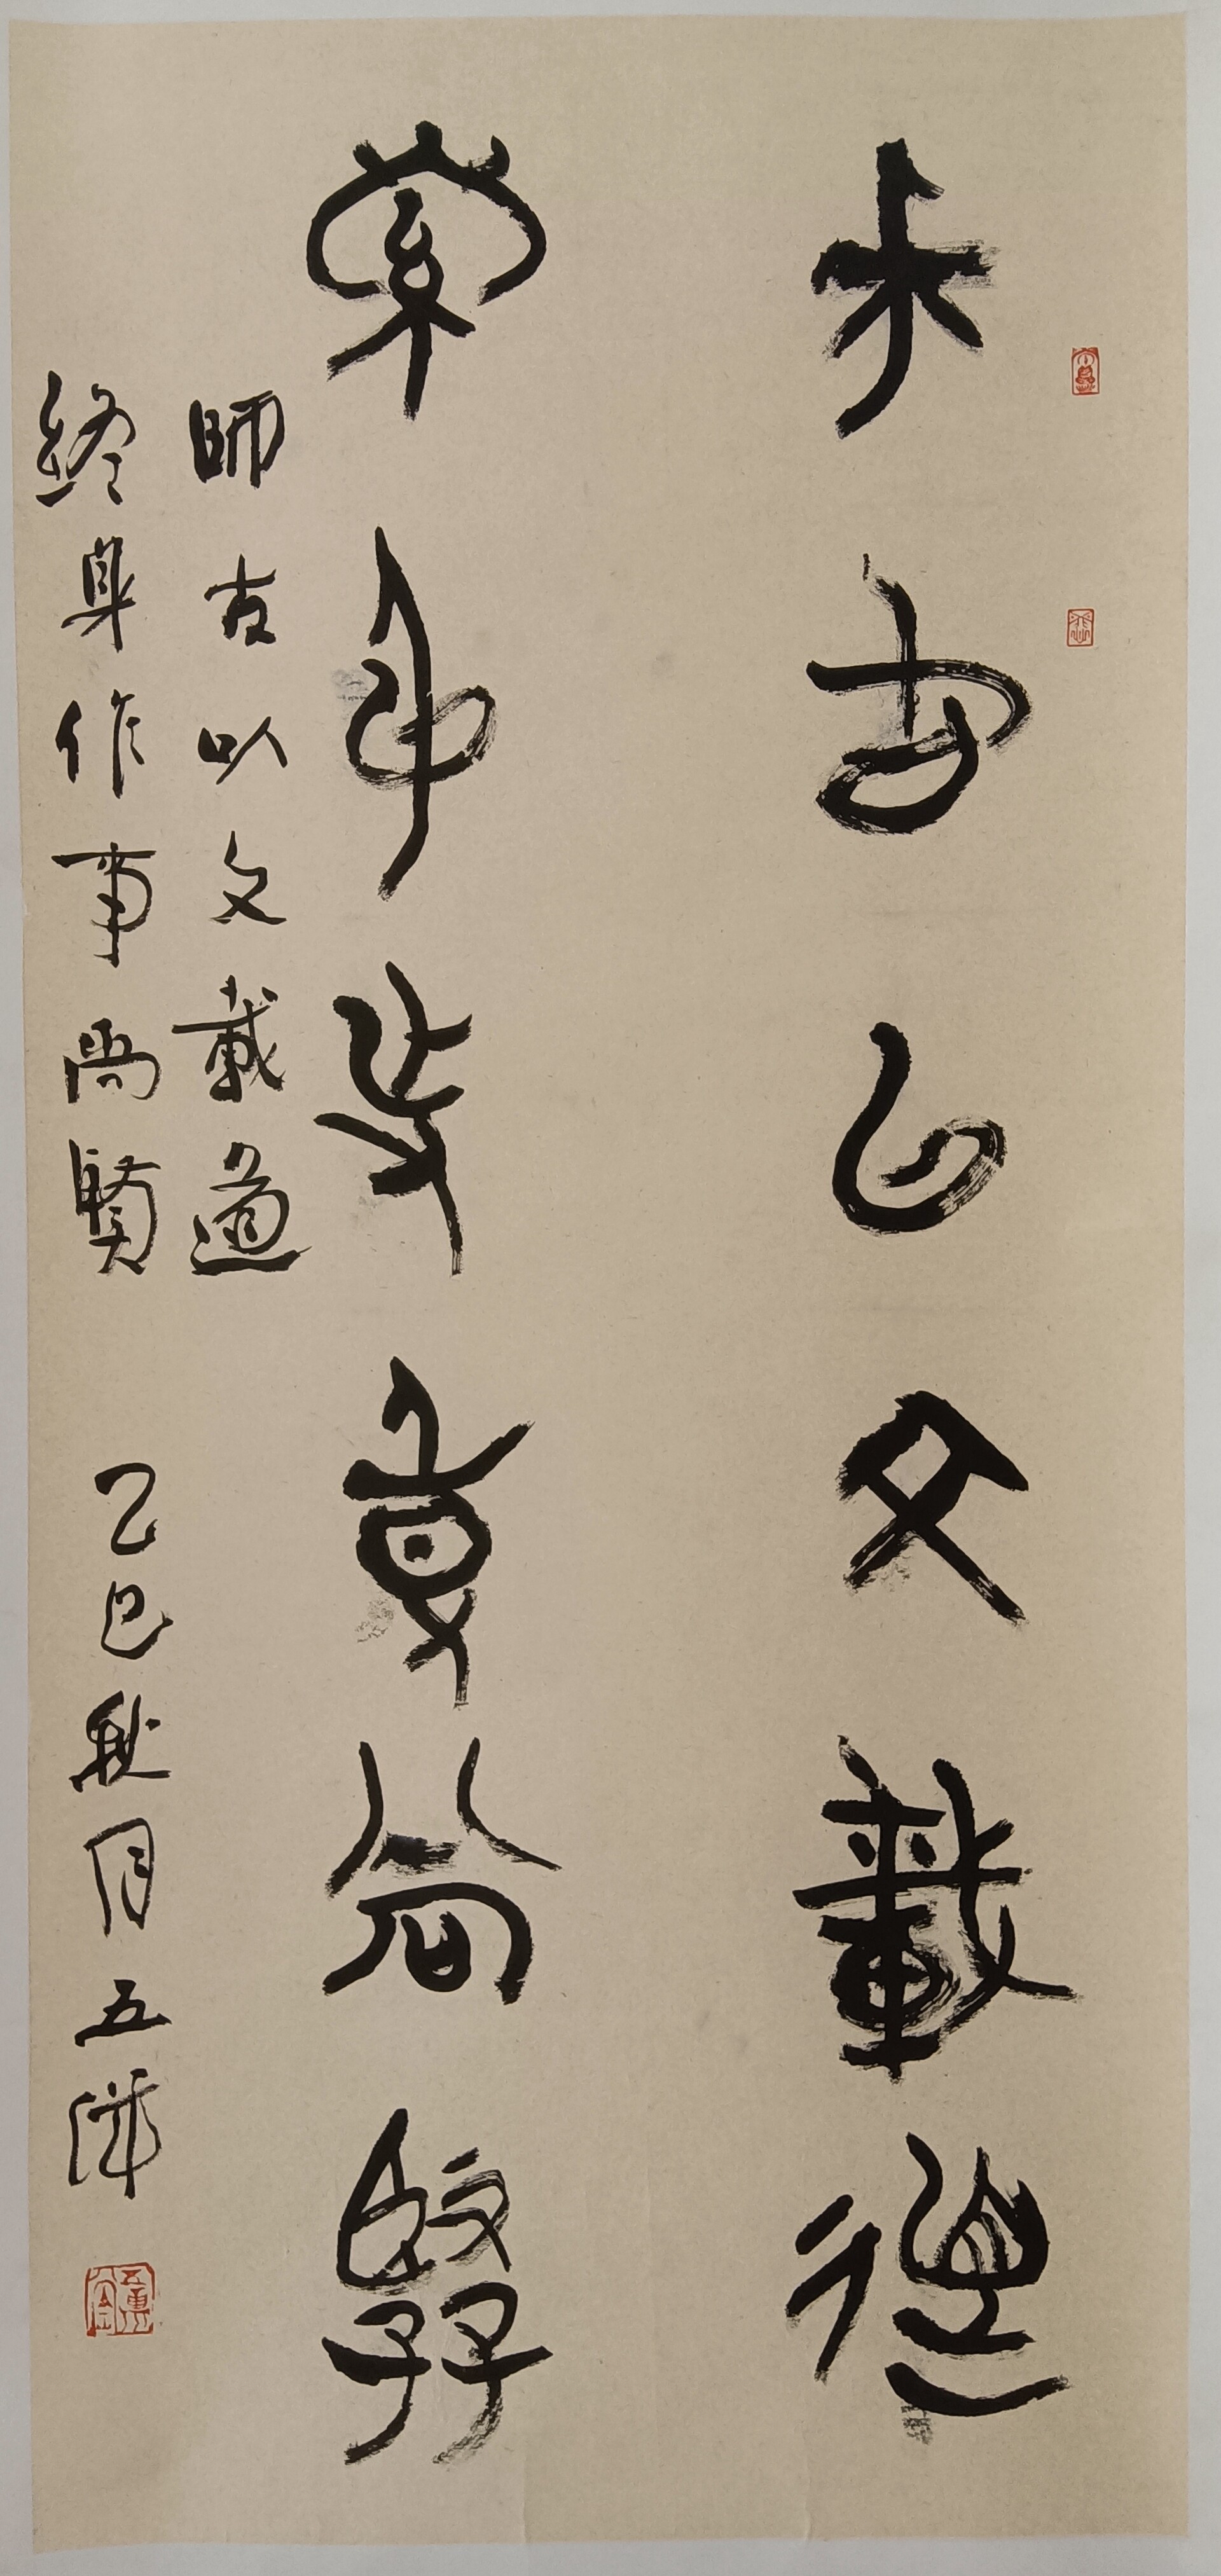 師古以文載道
終身作事尚賢
師古以文載道
終身作事尚賢 乙巳秋月五洋